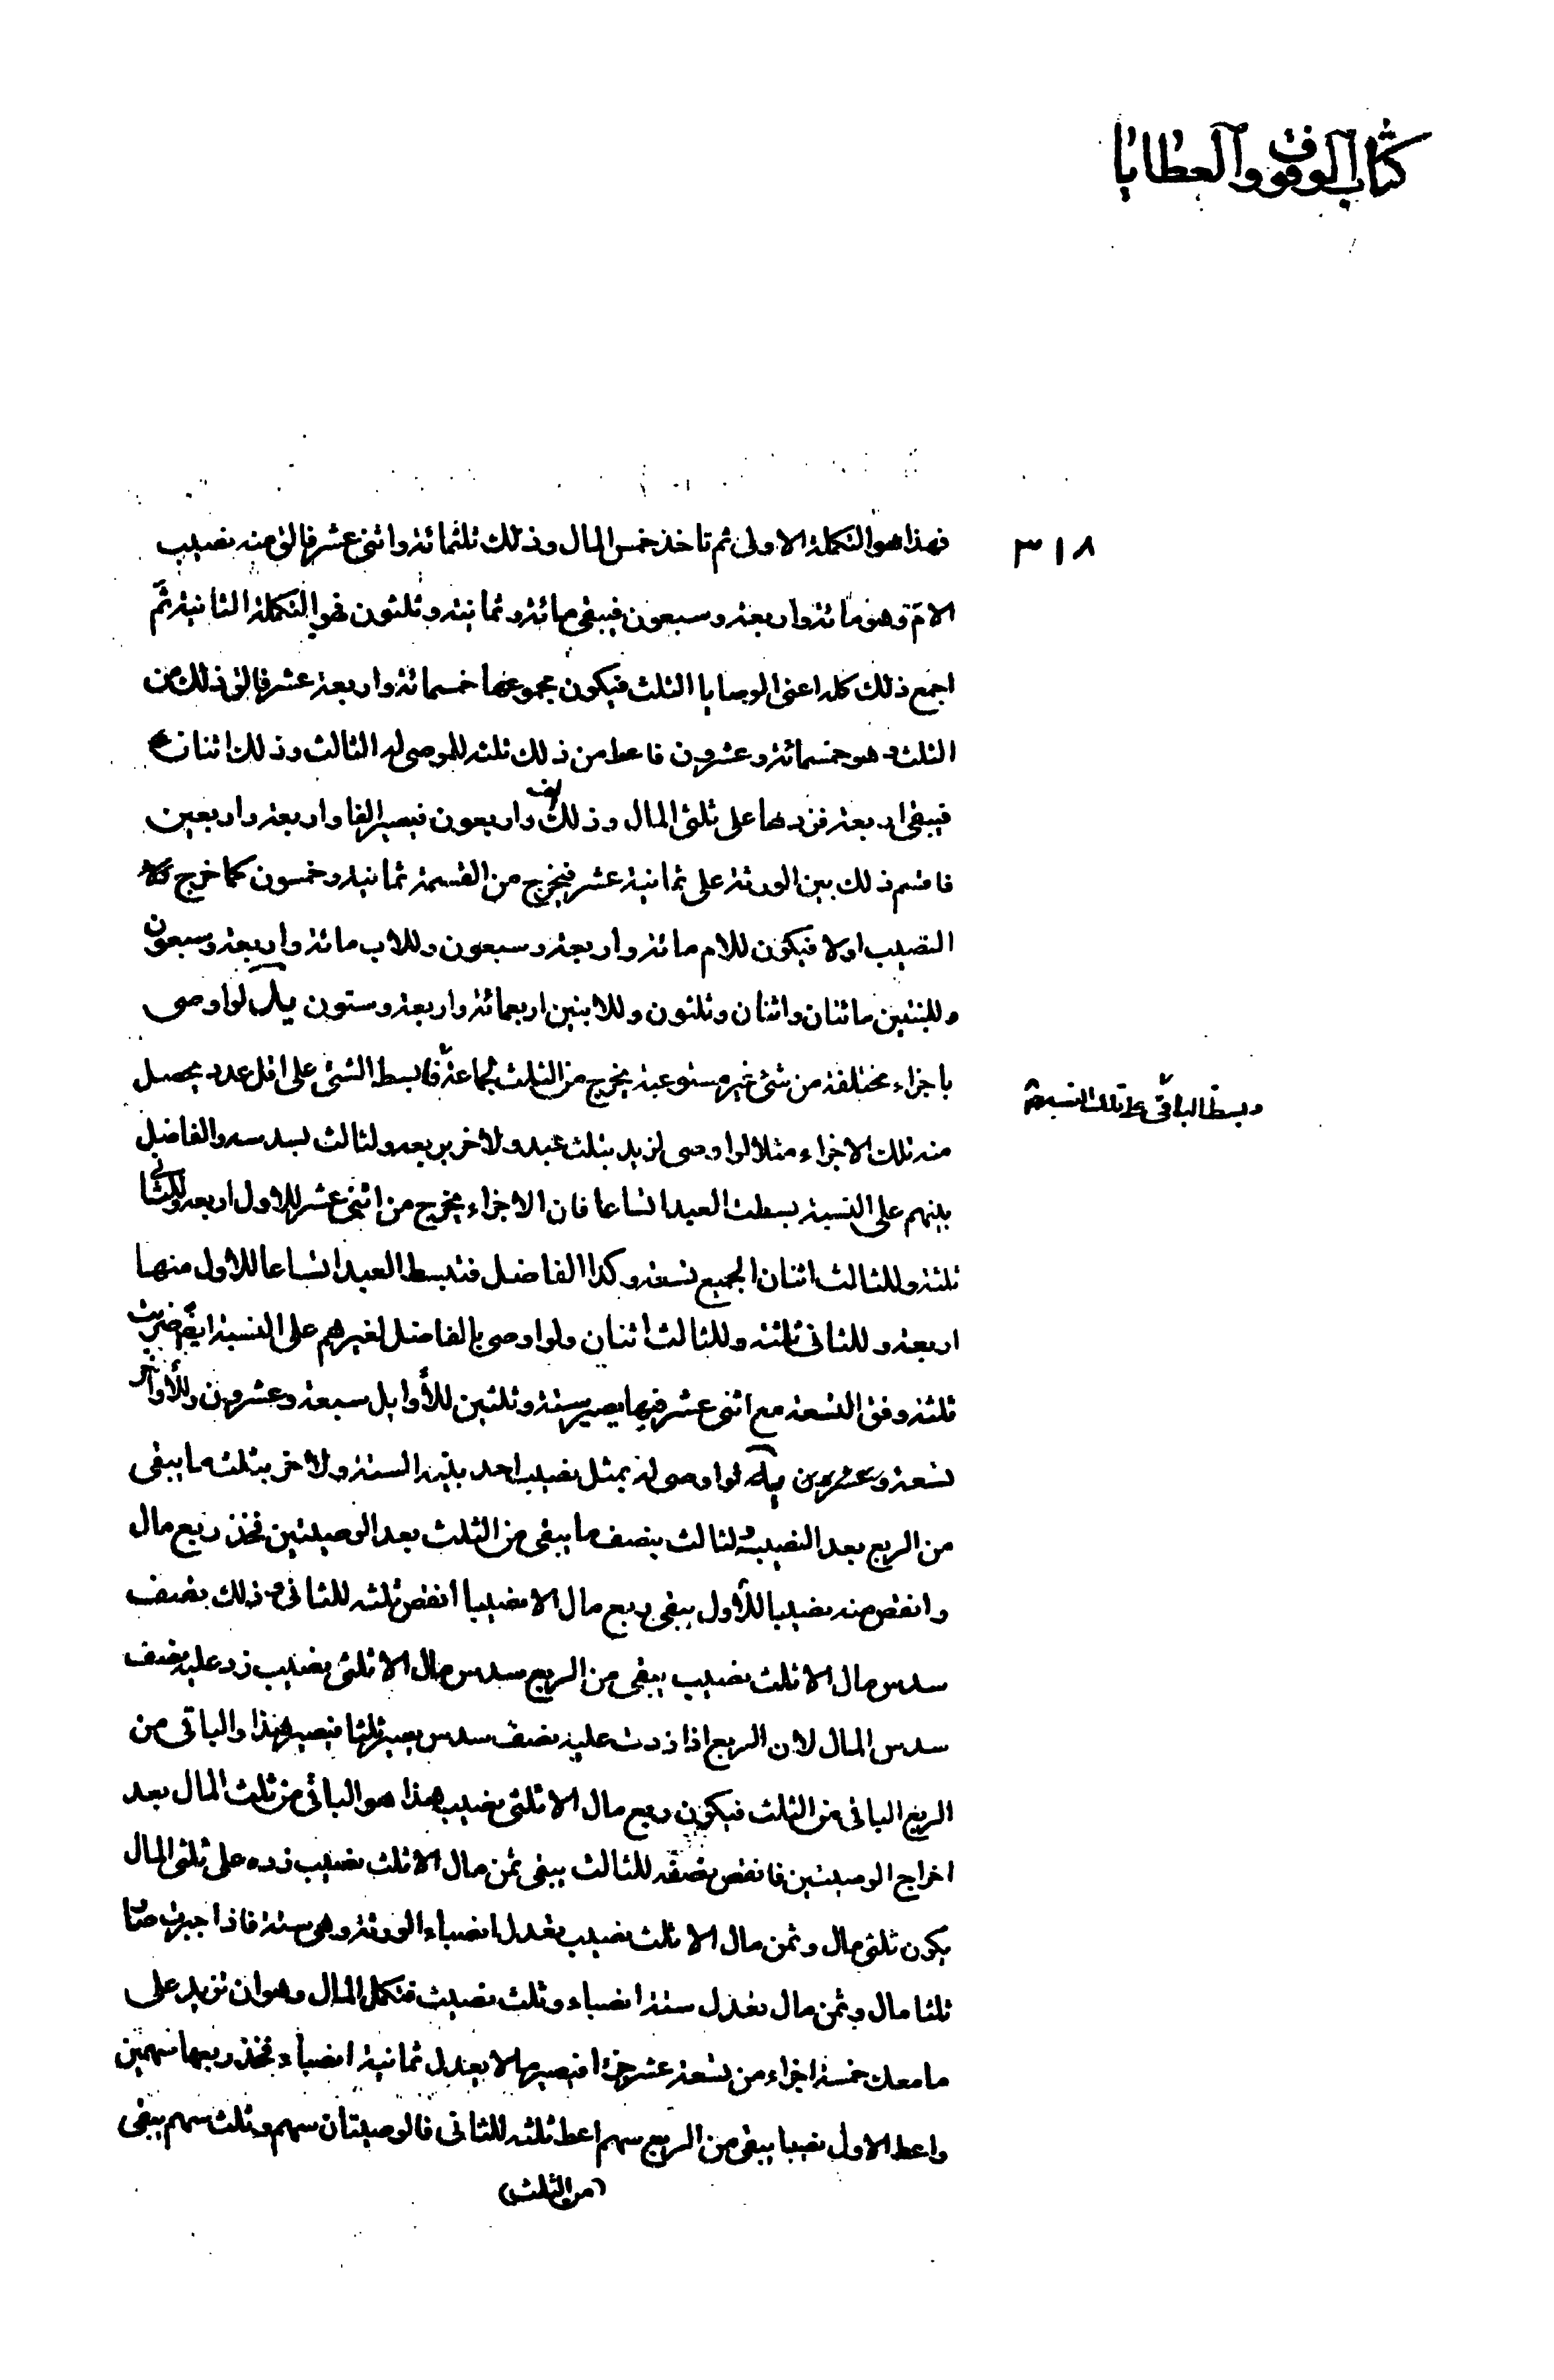 كتاب الوقوف والعطايا
٣١٨
فهذا هو التكملة الاولى ثم تاخذ خمس المال وذلك ثلثمائة واثنى عشر فالق منه نصيب
الام وهو مائة واربعة وسبعون فيبقى مائة وثمانية وثلثون فهو التكملة الثانية ثم
اجمع ذلك كله اعنى الوصايا الثلث فيكون مجموعها خمسمائة واربعة عشر فالق ذلك من
الثلث وهو خمسمائة وعشرون فاعط من ذلك ثلثه للموصى له الثالث وذلك اثنان
فيبقى اربعة فزدها على ثلثى المال وذلك الف واربعون فيصير الفا واربعة واربعين
فاقسم ذلك بين الورثة على ثمانية عشر فيخرج من القسمة ثمانية وخمسون كما خرج لك
النصيب اولا فيكون للام مائة واربعة وسبعون وللاب مائة واربعة وسبعون
وللبنتين مائتان واثنان وثلثون وللابنين اربعمائة واربعة وستون يد لو اوصى
باجزاء مختلفة من شئ غير مستوعبة يخرج من الثلث لجماعة فابسط الشئ على اقل عدد يحصل
ويبسط الباقى على تلك النسبة
منه تلك الاجزاء مثلا لو اوصى لزيد بثلث عبده ولاخر بربعه ولثالث بسدسه والفاضل
بينهم على النسبة بسطت العبد اتساعا فان الاجزاء يخرج من اثنى عشر للاول اربعة وللثانى
ثلثة وللثالث اثنان الجميع تسعة وكذا الفاضل فتبسط العبد اتساعا للاول منها
اربعة وللثانى ثلثة وللثالث اثنان ولو اوصى بالفاضل لغيرهم على النسبة ايضا ضربت
ثلثة وفق التسعة مع اثنى عشر فيها يصير ستة وثلثين للأوايل سبعة وعشرون وللأواخر
تسعة وعشرين يه لو اوصى له بمثل نصيب احد بنيه الستة ولاخر بثلث ما يبقى
من الربع بعد النصيب ولثالث بنصف ما يبقى من الثلث بعد الوصيتين فخذ ربع مال
وانقص منه نصيبا للأول يبقى ربع مال الا نصيبا انقص ثلثه للثانى وذلك نصف
سدس مال الا ثلث نصيب يبقى من الربع سدس مال الا ثلثى نصيب زد عليه نصف
سدس المال لان الربع اذا زدت عليه نصف سدس يصير ثلثا فيصير هذا والباقى من
الربع الباقى من الثلث فيكون ربع مال الا ثلثى نصيب هذا هو الباقى من ثلث المال بعد
اخراج الوصيتين فانقص نصفه للثالث يبقى ثمن مال الا ثلث نصيب زده على ثلثى المال
يكون ثلثى مال وثمن مال الا ثلث نصيب تعدل انصباء الورثة وهى ستة فاذا جبرت صار
ثلثا مال وثمن مال تعدل ستة انصباء وثلث نصيب فتكمل المال وهو ان تزيد على
ما معك خمسة اجزاء من تسعة عشر جزءا فيصير مالا يعدل ثمانية انصباء فخذ ربعها سهمين
واعط الاول نصيبا يبقى من الربع سهم اعط ثلثه للثانى فالوصيتان سهم وثلث سهم يبقى
(من الثلث)